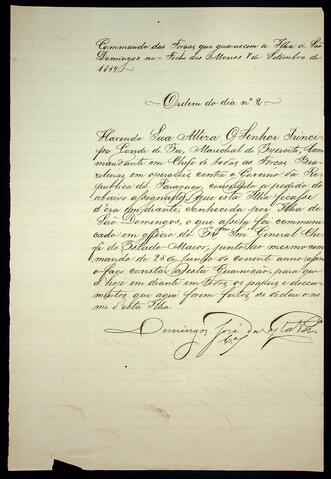 Commando das Forças que guarnecem a Ilha de São
Domingos no Fecho dos Morros 7 de Setembro de
1869.
Ordem do dia nº 2.
Havendo Sua Alteza O Senhor Princi
pe Conde d'Eu, Marechal do Exercito, Com
mandante em Chefe de todas as Forças Bra
zileiras em operações contra o Governo da Re
publica do Paraguay, concedido a pedido do
abaixo assignado, que esta Ilha ficasse
d'ora em diante, conhecida por Ilha de
São Domingos, o que assim foi communi
cado em officio do General Che
fe do Estado Maior, junto ao mesmo com
mando de 25 de Junho do corrente anno
o faço constar a esta Guarnição, para que
de hoje em diante em todos os papeis e docu
mentos que aqui forem feitos se declare o no
me d'esta Ilha.
Domingos José da